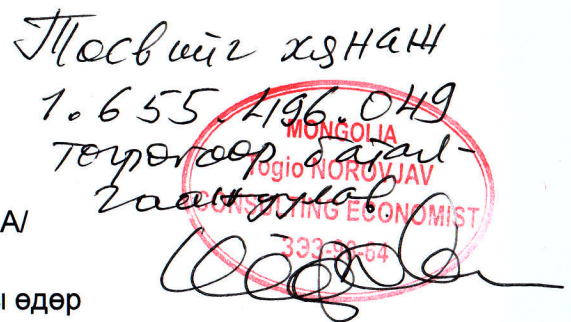 Төсвийг хянаж
1.655.496.049
төгрөгөөр батал-
гаажуулав.
MONGOLIA
Yogio NOROVJAV
CONSULTING ECONOMIST
ЗЭЗ-96-64
А/
өдөр